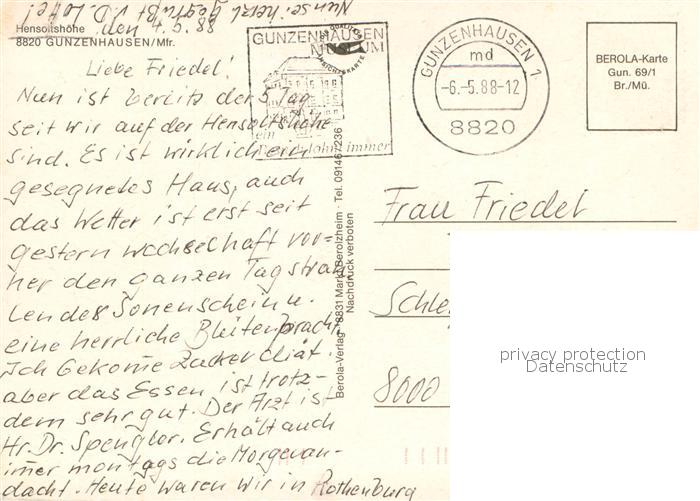 Nun sei herzl. gegrüßt v. D. Lotte!
Hensoltshöhe den 4.5.88
8820 GUNZENHAUSEN/Mfr.
Liebe Friedel!
Nun ist bereits der 5. Tag
seit wir auf der Hensoltshöhe
sind. Es ist wirklich ein
gesegnetes Haus, auch
das Wetter ist erst seit
gestern wechselhaft vor=
her den ganzen Tag strah
lender Sonenschein u.
eine herrliche Blütenpracht,
ich bekome Zuckerdiät.
aber das Essen ist trotz-
dem sehr gut. Der Arzt ist
Hr. Dr. Spengler. Erhält auch
imer montags die Morgenan-
dacht. Heute waren wir in Rothenburg
GUNZENHAUSEN
MUSEUM
QUALITÄTS
ANSICHTSKARTE
ein
GUNZENHAUSEN 1
md
-6.-5.88-12
8820
BEROLA-Karte
Gun. 69/1
Br./Mü.
Berola-Verlag · 8831 Markt Berolzheim · Tel. 09146/236
Nachdruck verboten
Frau Friedel
Schle
8000
privacy protection
Datenschutz